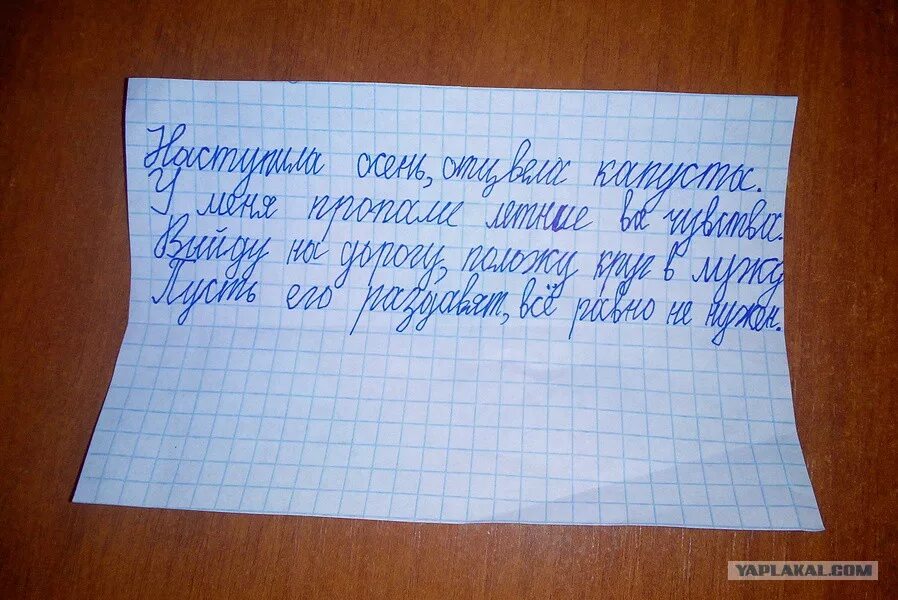 Наступила осень, отцвела капуста.
У меня пропали летние все чувства.
Выйду на дорогу, положу круг в лужу
Пусть его раздавят, всё равно не нужен.
YAPLAKAL.COM